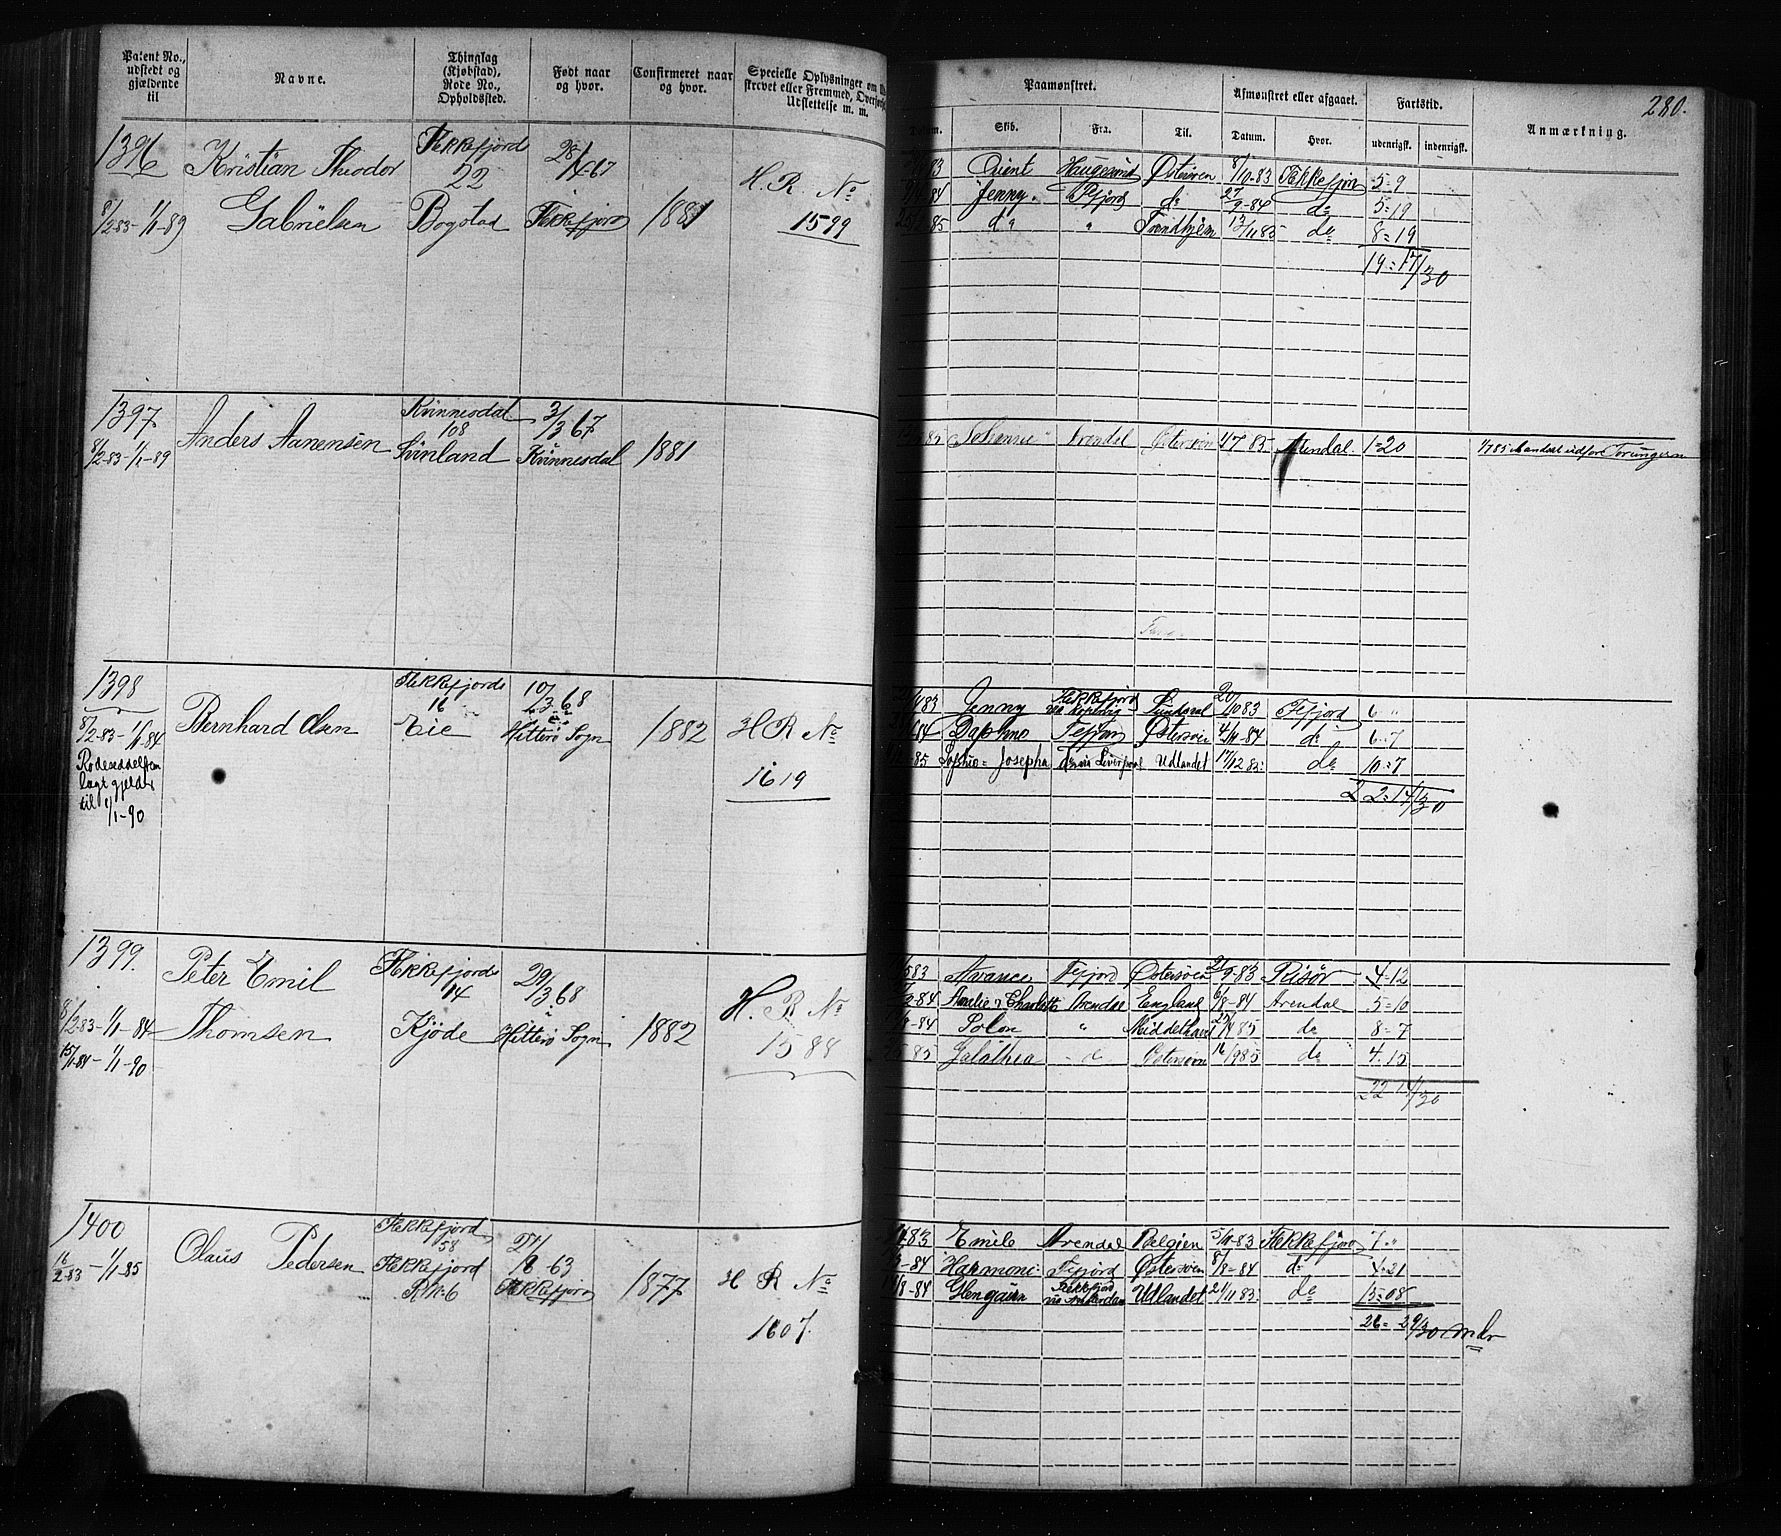 Patent No., udstedt og gjældende til
Navne.
Thinglag (Kjøbstad), Rode No., Opholdssted.
Født naar og hvor.
Confirmeret naar og hvor.
Specielle Oplysninger om
strevet eller Fremmed, Overført
Udslettelse m. m.
Paamønstret.
Afmønstret eller afgaaet.
Fartstid.
280.
Skib.
Fra.
Til.
Datum.
Hvor.
udenrigsk.
indenrigsk.
Anmærkning.
1396
8/2-83-1/1-89
Kristian Theodor
Gabrielsen
Flekkefjord
22
Bogstad
Flekkefjord
1881
H. R. No
1599
83 Orient Haugesund Østersøen 8/10-83 Flekkefjord 5=9
84 Jenny. Fefjord do 27/9-84 do 5=19
85 do " Trondhjem 13/11 85 do 8=19
19=17/30
1397
8/2-83-1/1-89
Anders Aanensen
Kvinnesdal
108
Svinland
3/3 67
Kvinnesdal
1881
85 Arendal Østersøen 4/7 85 1=20
1398
8/2-83-1/1-84
til 1/1-90
Bernhard Olsen
Flekkefjords
16
Eie
10/3 68
Hitterø Sogn
1882
H R No
1619
83 Jenny Flekkefjord 20/10 83 Fefjord 6 "
84 Daphno Fefjord Østersøen 4/11-84 do 6=7
85 Sophie=Josepha do via Liverpool Udlandet 17/12 85 do 10=7
22=14/30
1399.
8/2-83-1/1-84
15/1-84-1/1-90
Peter Emil
Thomsen
Flekkefjords
14
Kjöde
29/3 68
Hitterø Sogn
1882
H. R No
1588
83 Avance Fefjord Østersøen 2/9-83 Risör 4=12
84 Amelie & Charlotte Arendal England 6/8-84 Arendal 5=10
84 Solon " Middelhavet do 8=7
85 Galathea Østersøen 16/9 85 do 4.15
22 14/30
1400
16/2-83-1/1-85
Olaus Pedersen
Flekkefjord
58
Flekkefjord
R.N. 6
63
Flekkefjord
1877
H R No
1607.
83 Emile Arendal Belgien 5/11-83 Flekkefjord
84 Harmoni Fefjord Østersøen 8/8-84 do 4=21
84 Glengairn Flekkefjord via Amsterdam Udlandet do 13=08
26=29/30 mdr